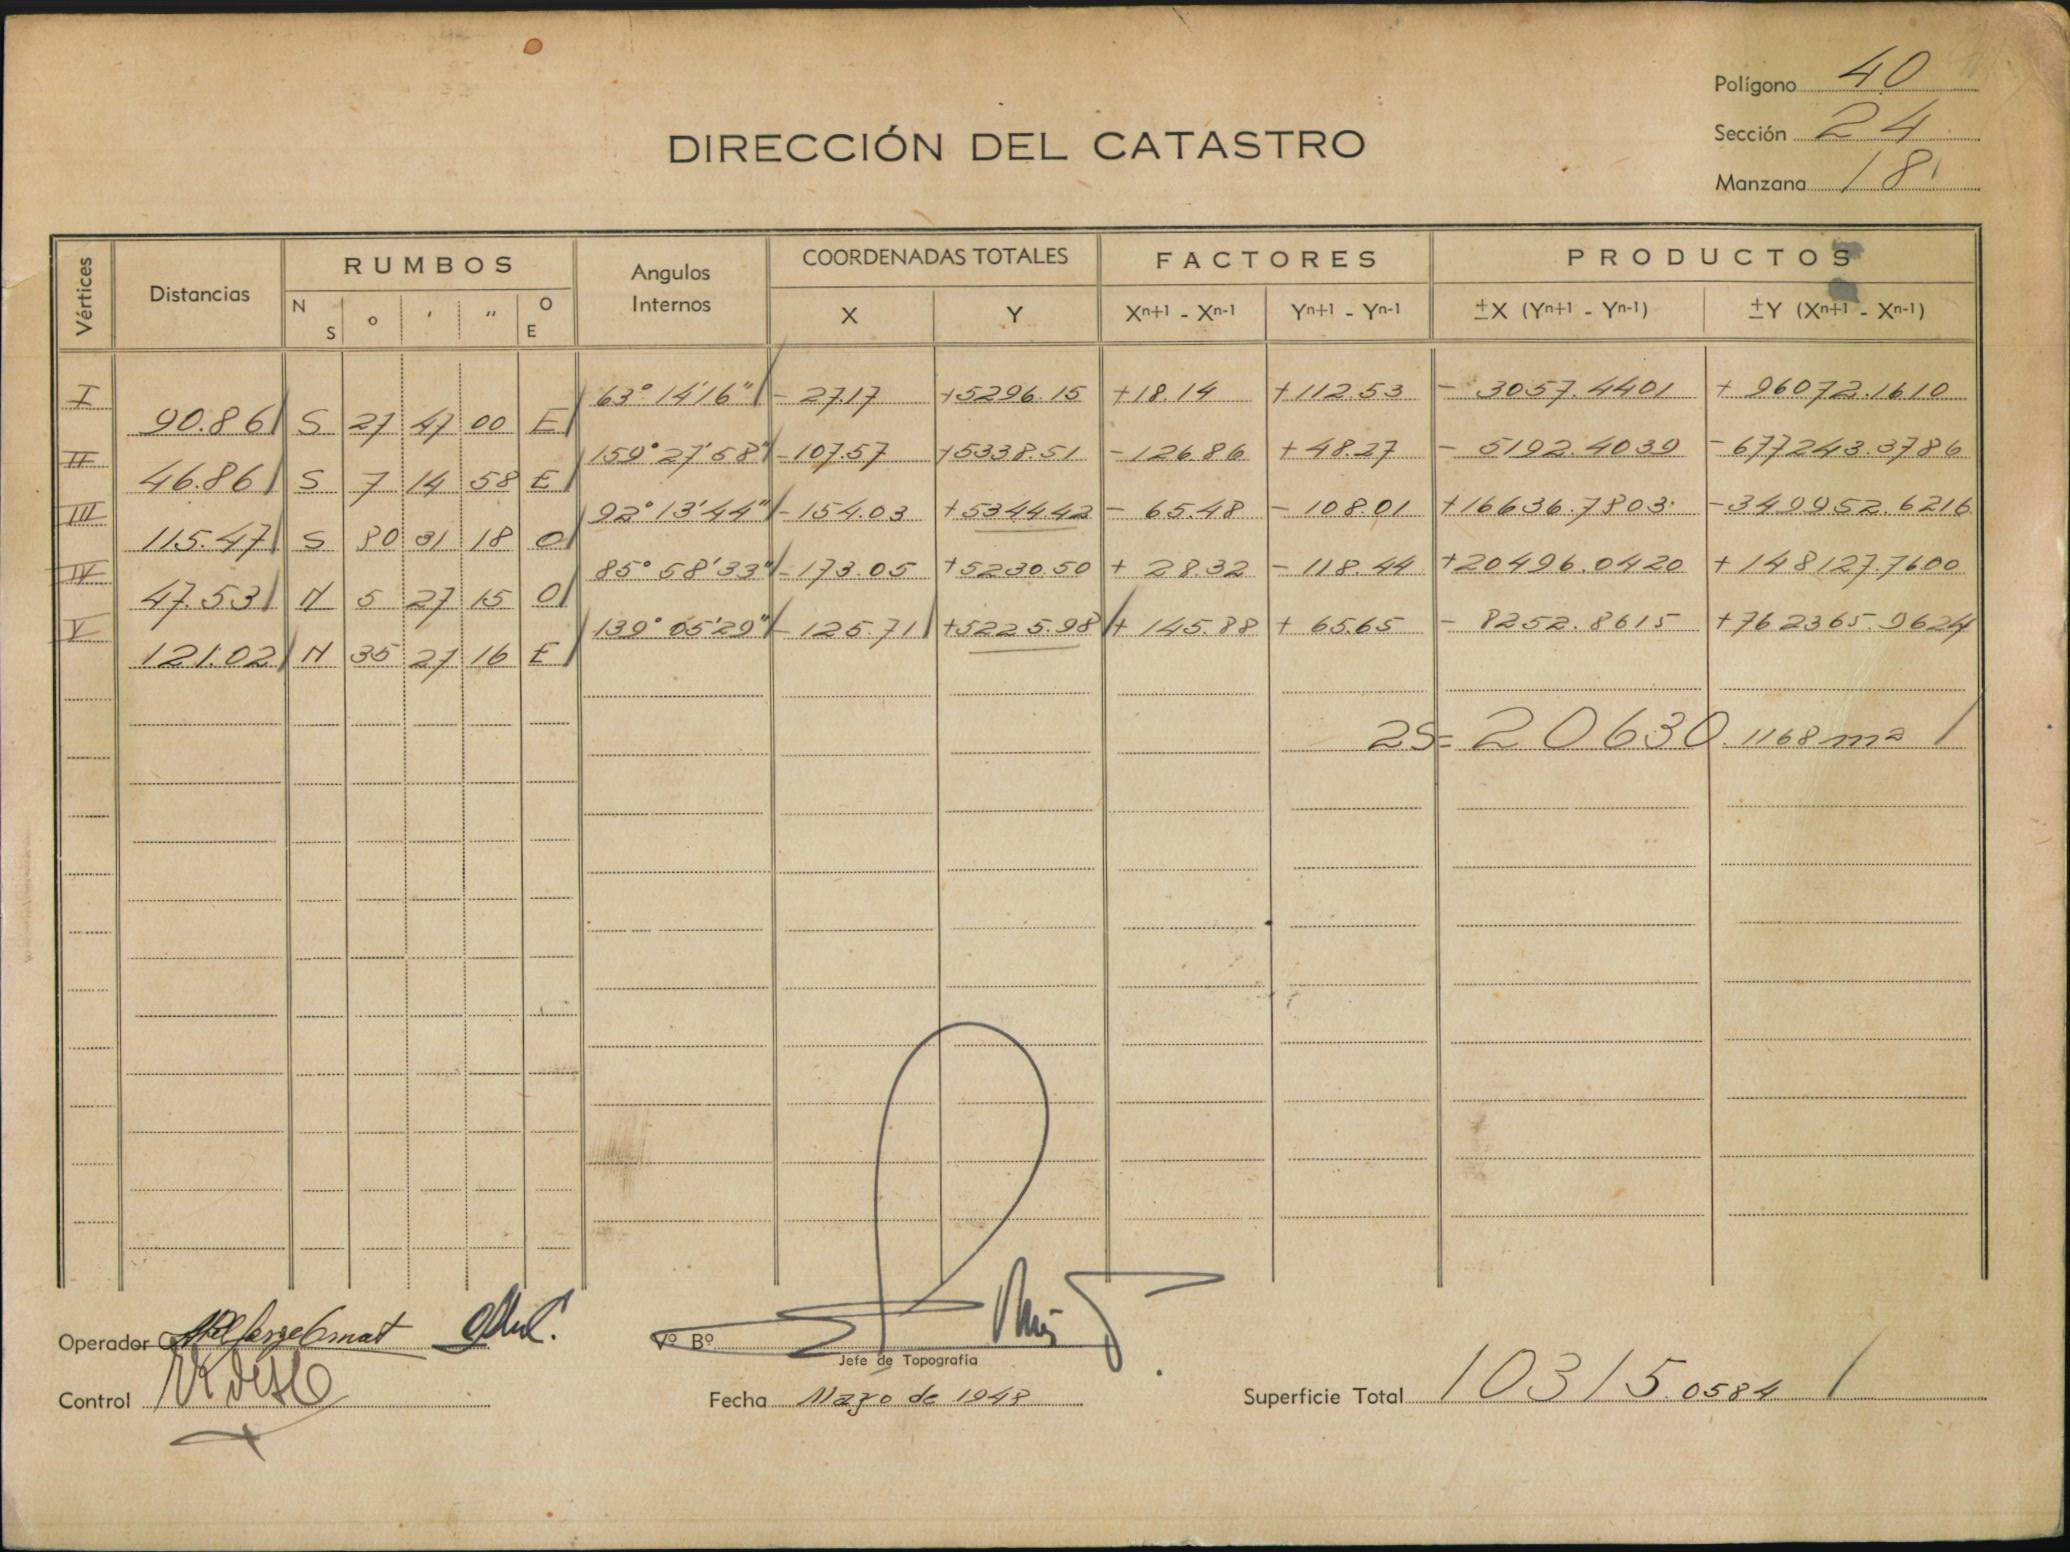 Polígono 40
Sección 24
Manzana 18
DIRECCIÓN DEL CATASTRO
Vértices Distancias RUMBOS Angulos Internos COORDENADAS TOTALES FACTORES PRODUCTOS
N S ° ' " O E X Y Xn+1 - Xn-1 Yn+1 - Yn-1 ±X (Yn+1 - Yn-1) ±Y (Xn+1 - Xn-1)
I 63° 14' 16" - 27.17 +5296.15 +18.14 +112.53 - 3057.4401 + 96072.1610
90.86 S 27 47 00 E
II 159° 27' 58" -107.57 +5338.51 - 126.86 + 48.27 - 5192.4039 - 677243.3786
46.86 S 7 14 58 E
III 92° 13' 44" - 154.03 +5344.42 - 65.48 - 108.01 +16636.7803 -349952.6216
115.47 S 80 31 18 O
IV 85° 58' 33" - 173.05 +5230.50 + 28.32 - 118.44 +20496.0420 + 148127.7600
47.53 N 5 27 15 O
V 139° 05' 29" - 125.71 +5225.98 + 145.88 + 65.65 - 8252.8615 +762365.9624
121.02 N 35 27 16 E
2S= 20630.1168 m2
Operador
Vº Bº
Jefe de Topografía
Control
Fecha Mazo de 1948
Superficie Total 10315.0584